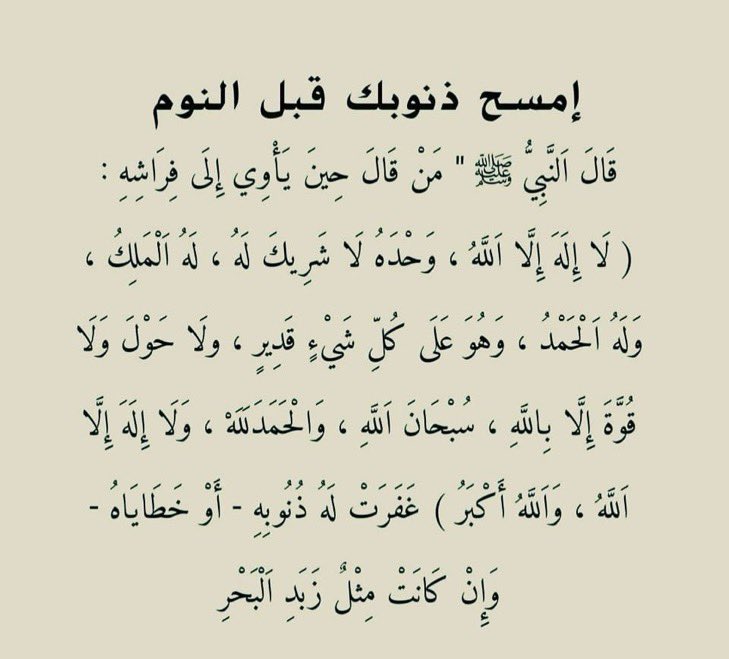 إمسح ذنوبك قبل النوم
قَالَ اَلنَّبِيُّ ﷺ " مَنْ قَالَ حِينَ يَأْوِي إِلَى فِرَاشِهِ :
( لَا إِلَهَ إِلَّا اَللَّهُ ، وَحْدَهُ لَا شَرِيكَ لَهُ ، لَهُ اَلْمَلِكُ ،
وَلَهُ اَلْحَمْدُ ، وَهُوَ عَلَى كُلِّ شَيْءٍ قَدِيرٍ ، ولَا حَوْلَ وَلَا
قُوَّةَ إِلَّا بِاللَّهِ ، سُبْحَانَ اَللَّهِ ، وَالْحَمَدَلَلَهْ ، وَلَا إِلَهَ إِلَّا
اَللَّهُ ، وَاَللَّهُ أَكْبَرُ ) غَفَرَتْ لَهُ ذُنُوبِهِ - أَوْ خَطَايَاهُ -
وَإِنْ كَانَتْ مِثْلٌ زَبَدِ اَلْبَحْرِ